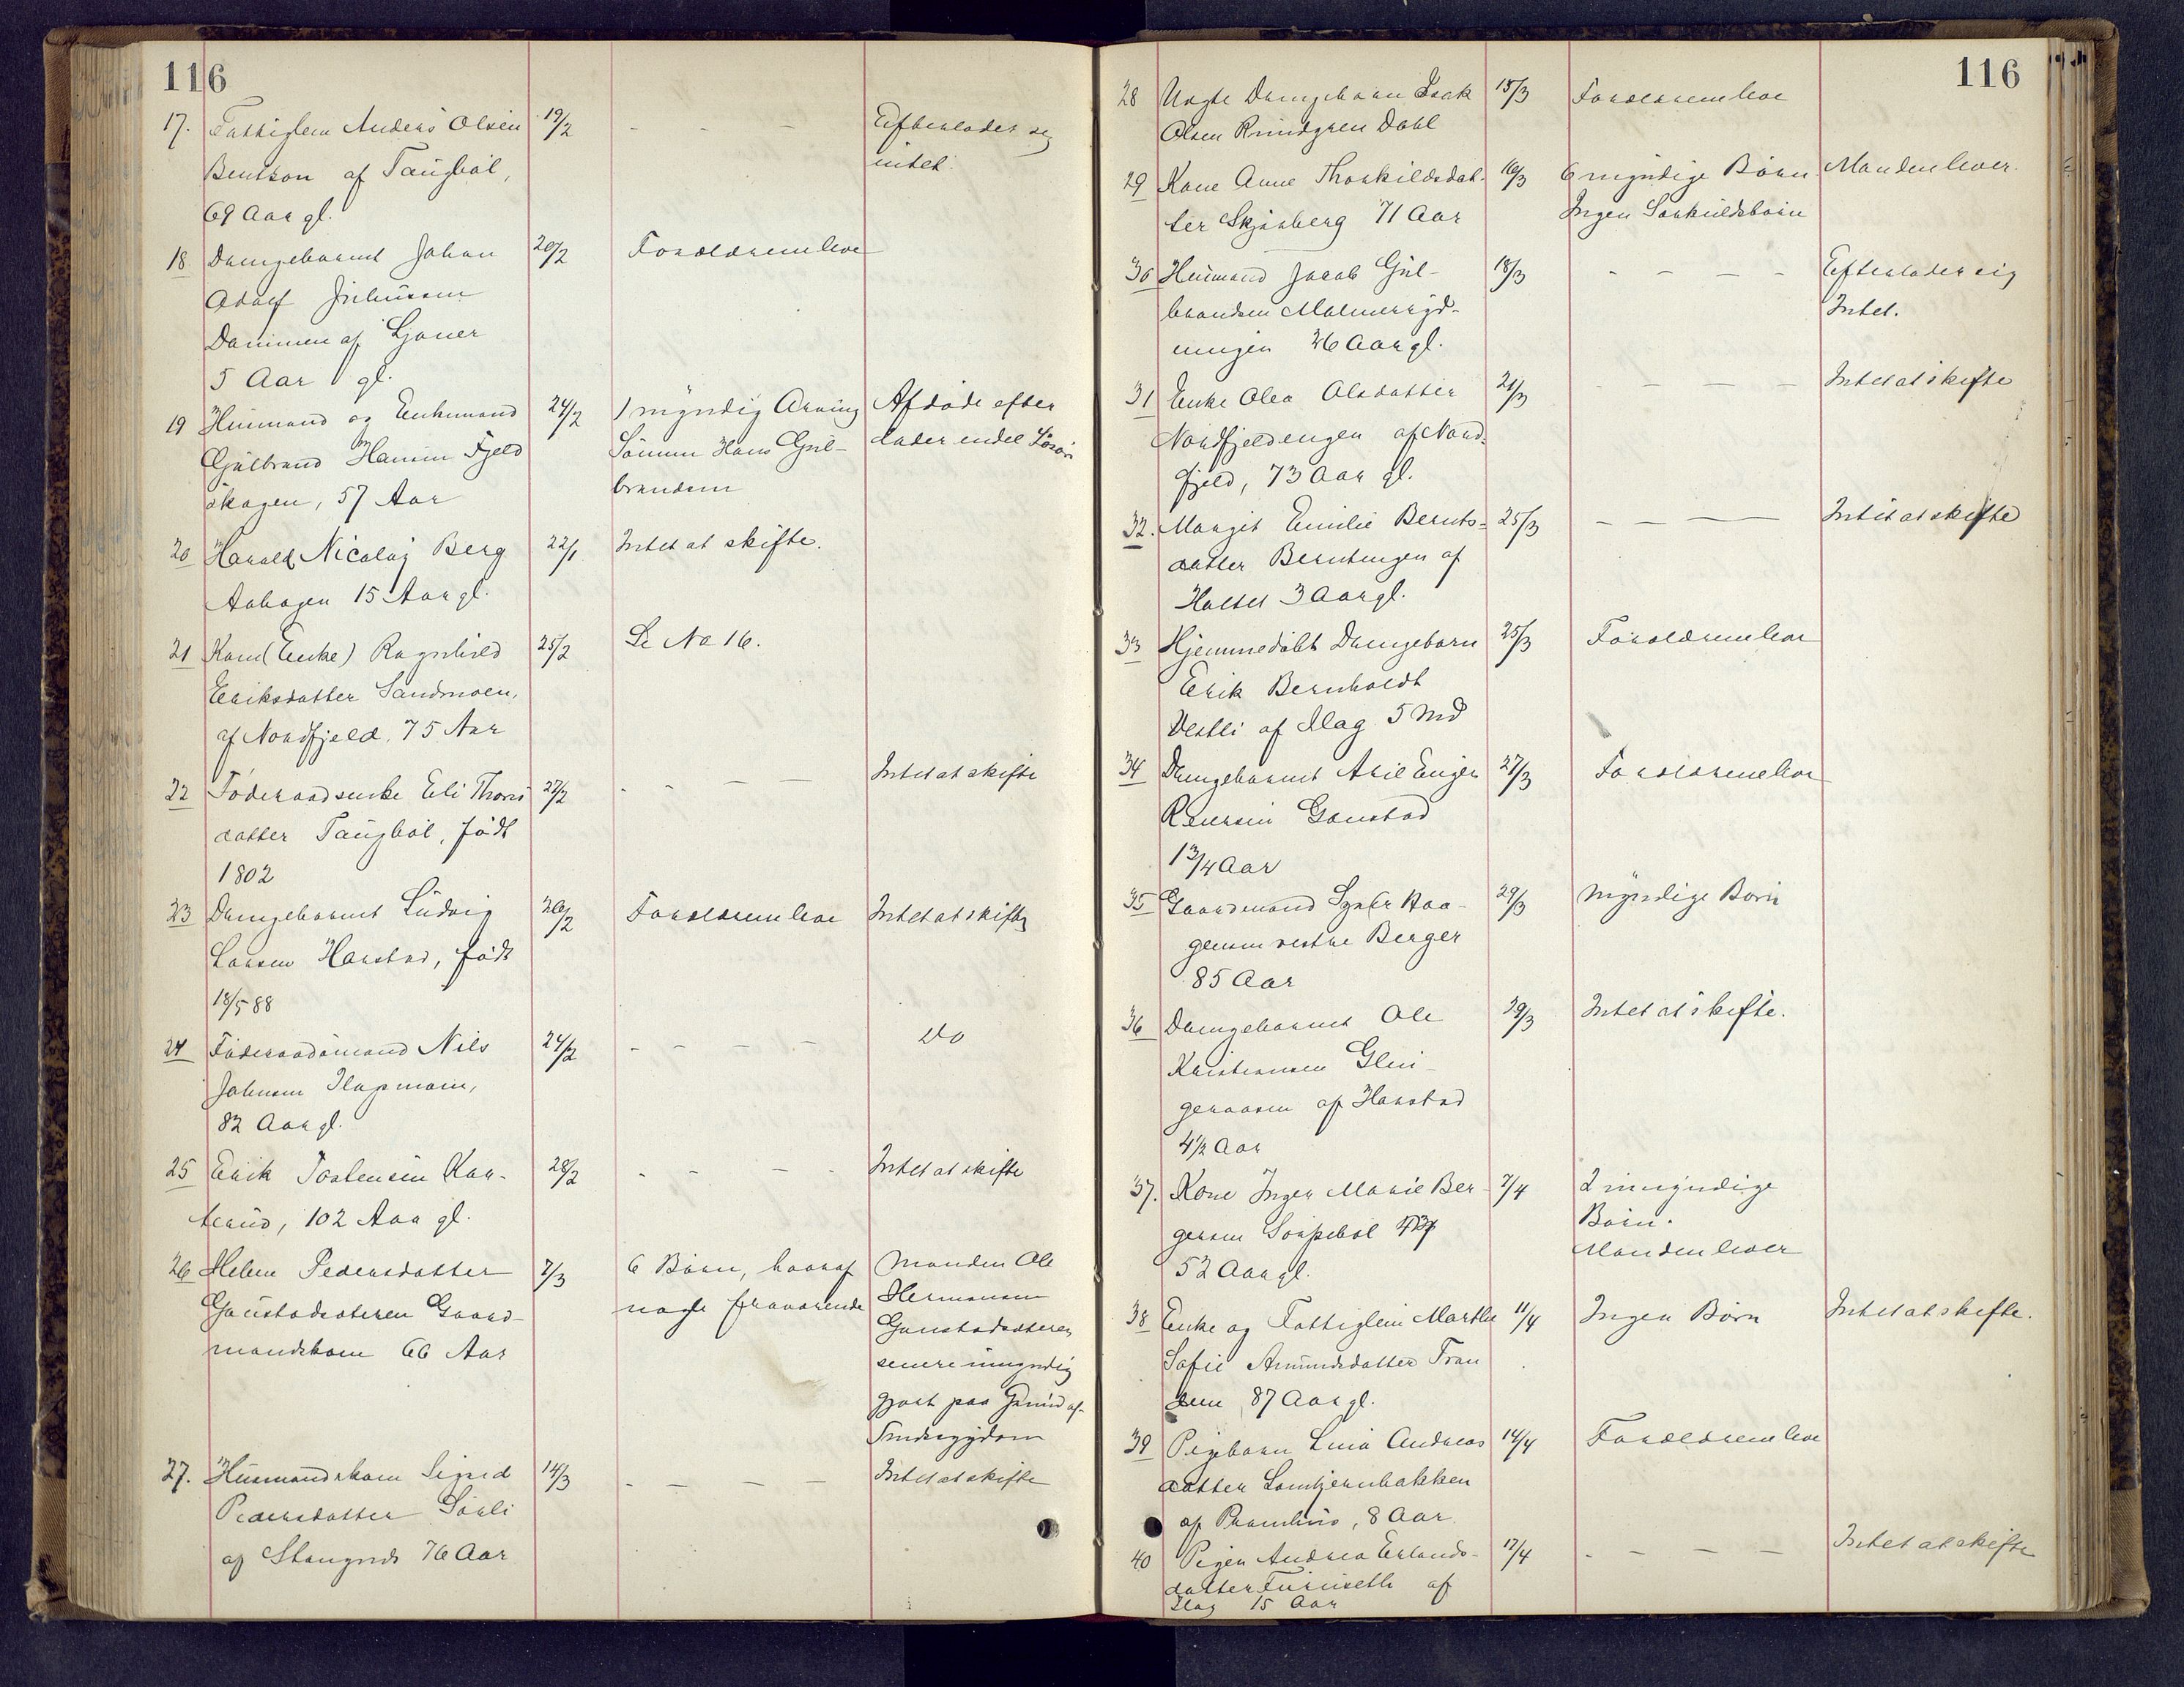 116
17. Fattiglem Anders Olsen 19/2 - - - Efterlader sig
Bentson af Taugbøl, intet.
69 Aar gl.
18 Drengebarnet Johan 20/2 Forældrene leve
Adolf Juliussen
Dammen af Gjøner
5 Aar gl.
19 Husmand og Enkemand 24/2 1 myndig Arving Afdøde efter
Gulbrand Hansen Fjeld Sønnen Hans Gul- lader endel Løsøre
skogen, 57 Aar brandsen
20 Harald Nicolai Berg 22/1 Intet at skifte.
Aahagen 15 Aar gl.
21 Kone (Enke) Ragnhild 25/2 Se No 16.
Eriksdatter Sandmoen,
af Nordfjeld. 75 Aar
22 Føderaadsenke Eli Thors 27/2 - - - - Intet at skifte
datter Taugbøl, født
1802
23 Drengebarnet Ludvig 26/2 Forældrene leve Intet at skifte
Larsen Harstad, født
18/5 88
24 Føderaadsmand Nils 24/2 - - - - Do
Johnsen
82 Aar gl.
25 Erik Torstensen Kar- 28/2 - - - - Intet at skifte
terud, 102 Aar gl.
26 Helene Pedersdatter 7/3 6 Børn, hvoraf Manden Ole
Gaustadsæteren Gaard- nogle fraværende Hermansen
mandskone 66 Aar Gaustadsæteren
senere umyndig
gjort paa Grund af
Sindssygdom
27. Husmandskone Sigrid 14/3 - - - - Intet at skifte
Pedersdatter Sørli
af Stangnds 76 Aar
116
28 Uægte Drengebarn Isak 15/3 Forældrene leve
Olsen Rundgren Dahl
29 Kone Anne Thorkildsdat- 16/3 6 myndige Børn Manden lever.
ter Skjønberg 71 Aar Ingen Særkuldsbørn
30 Husmand Jacob Gul- 18/3 - - - - Efterlader sig
brandsen Malmerryd- Intet.
ningen 36 Aar gl.
31 Enke Olea Olsdatter 21/3 - - - - Intet at skifte
Nordfjeldengen af Nord-
fjeld, 73 Aar gl.
32. Margit Emilie Bernts- 25/3 - - - Intet at skifte
datter Berntengen af
Holtet 3 Aar gl.
33 Hjemmedøbt Drengebarn 25/3 Forældrene leve
Erik Bernholdt
Vestli af Ilag 5 Md
34 Drengebarnet Aril Enger 27/3 Forældrene leve
Reiersen Gaustad
1 3/4 Aar
35 Gaardmand Syver Haa- 29/3 myndige Børn
gensen vestre Berger
85 Aar
36 Drengebarnet Ole 29/3 Intet at skifte.
Kristiansen Glen-
geraasen af Harstad
4 1/2 Aar
37. Kone Inger Marie Ber- 7/4 2 umyndige
gersen Sorpebøl Børn.
52 Aar gl. Manden lever
38 Enke og Fattiglem Marthe 11/4 Ingen Børn Intet at skifte.
Sofie Amundsdatter Tran
dem 87 Aar gl.
39 Pigebarn Lina Andreas 14/4 Forældrene leve
datter Lomtjernbakken
af Pramhus, 8 Aar
40 Pigen Andrea Erlands- 17/4 - - - - Intet at skifte
datter Furuseth af
Ilag 15 Aar